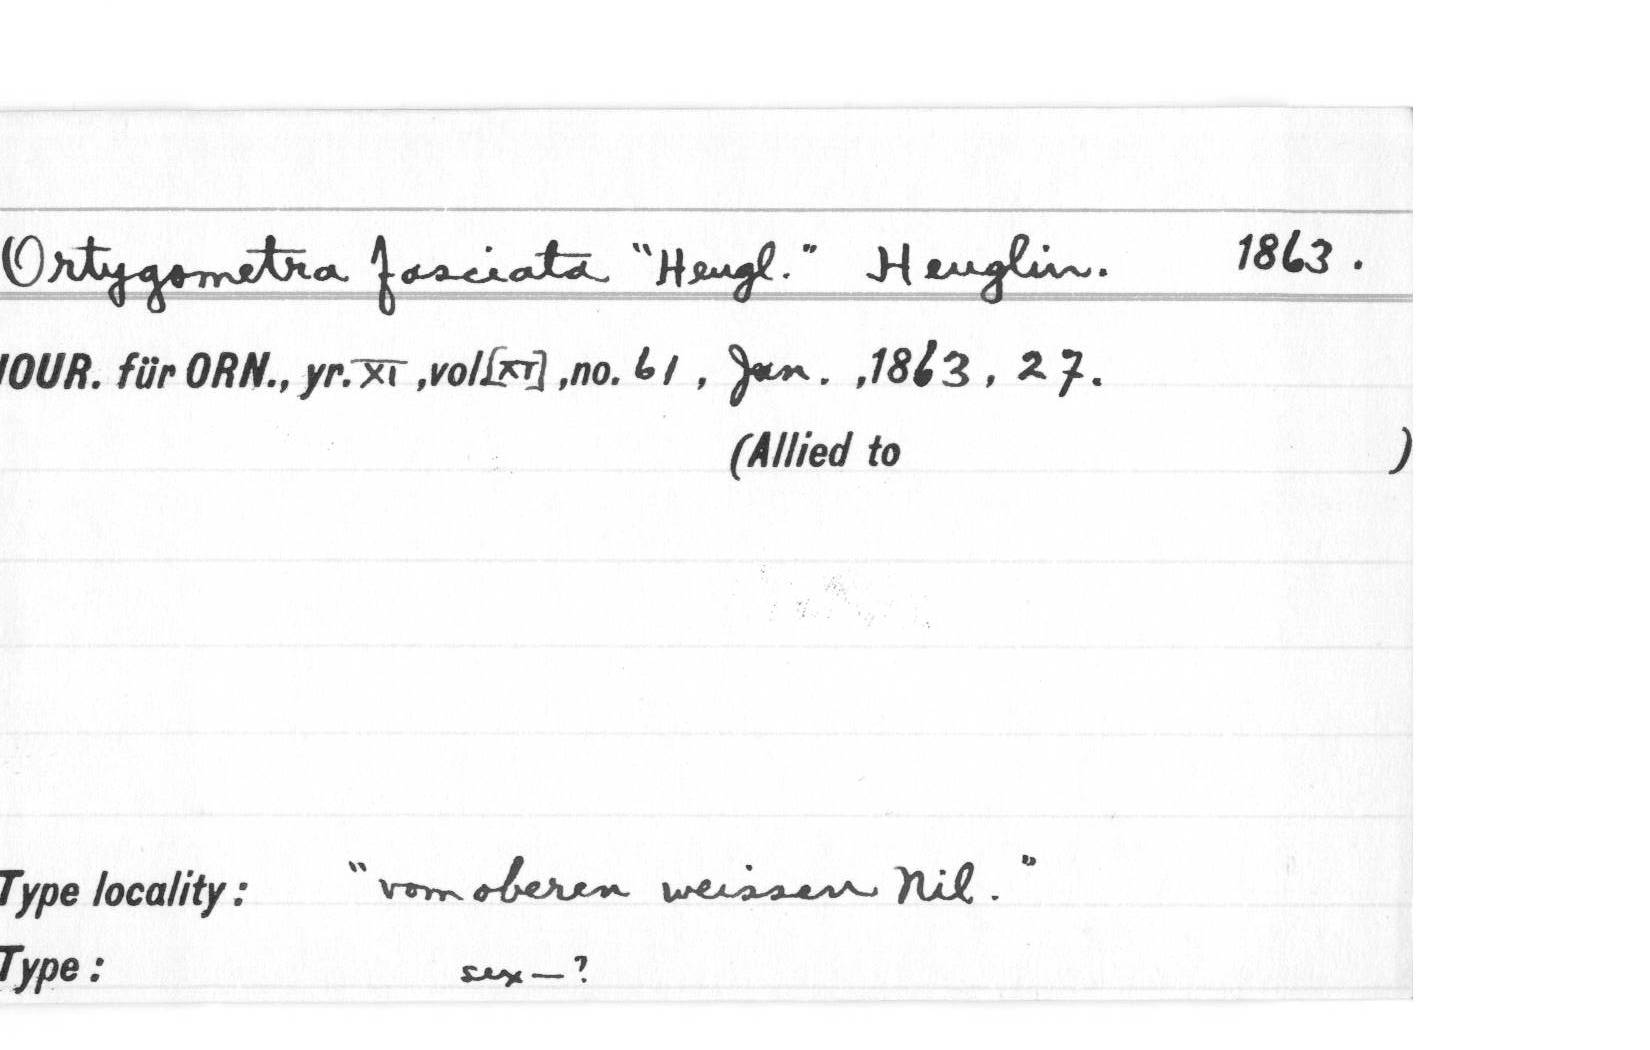 Ortygometra fasciata "Heugl." Heuglin. 1863.
JOUR. für ORN., yr. XI, vol. [XI], no. 61, Jan., 1863, 27.
(Allied to )
Type locality: "vom oberen weissen Nil."
Type: sex—?